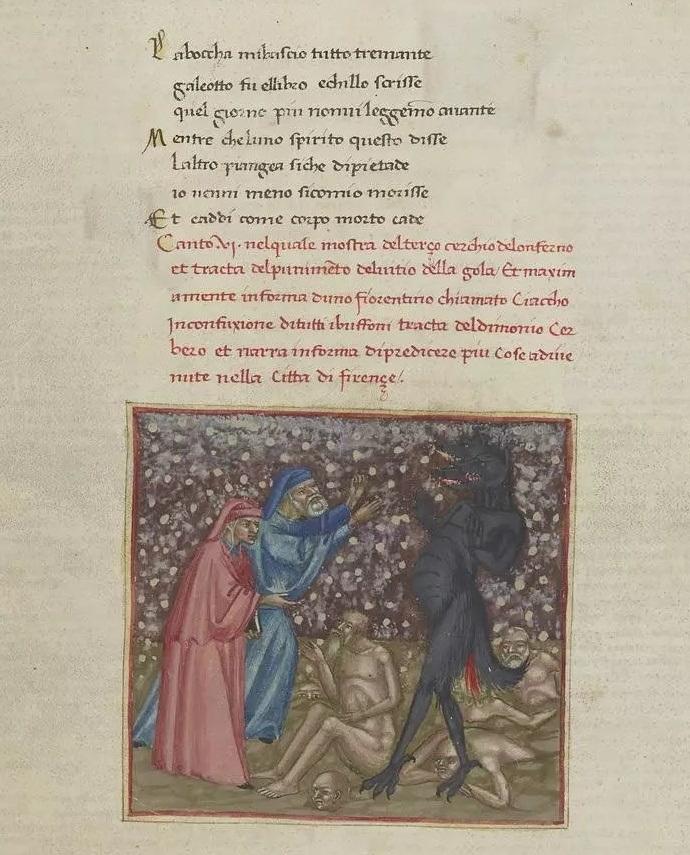 La boccha mi bascio tutto tremante
galeotto fu ellibro echillo scrisse
quel giorno piu nonui leggemo auante
Mentre cheluno spirito questo disse
Laltro piangea siche dipietade
io uenni meno sicomio morisse
Et caddi come corpo morto cade
Canto VI. nelquale mostra delterço cerchio deloinferno
et tracta delpunimeto deluitio della gola Et maxim
amente informa duno fiorentino chiamato Ciaccho
Inconfuxione ditutti ibuffoni tracta deldimonio Cer
bero et narra informa dipredicere piu Cose adiue
nute nella Citta di firençe.